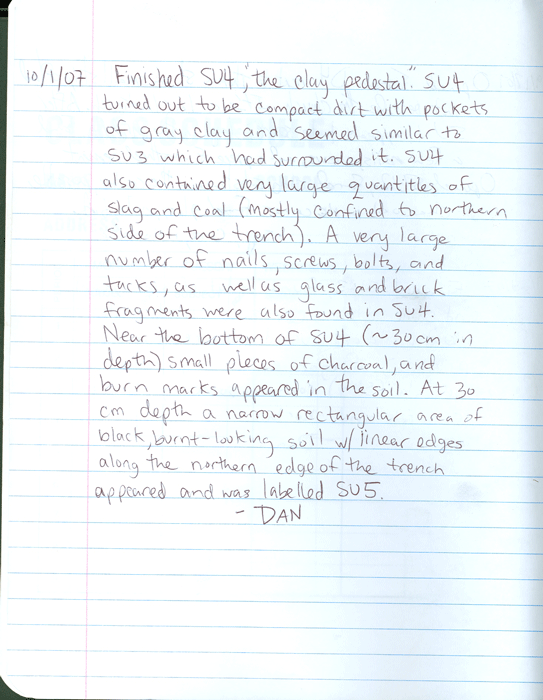 10/1/07 Finished SU4, "the clay pedestal." SU4
turned out to be compact dirt with pockets
of gray clay and seemed similar to
SU3 which had surrounded it. SU4
also contained very large quantities of
slag and coal (mostly confined to northern
side of the trench). A very large
number of nails, screws, bolts, and
tacks, as well as glass and brick
fragments were also found in SU4.
Near the bottom of SU4 (~30cm in
depth) small pieces of charcoal, and
burn marks appeared in the soil. At 30
cm depth a narrow rectangular area of
black, burnt-looking soil w/ linear edges
along the northern edge of the trench
appeared and was labelled SU5.
- DAN